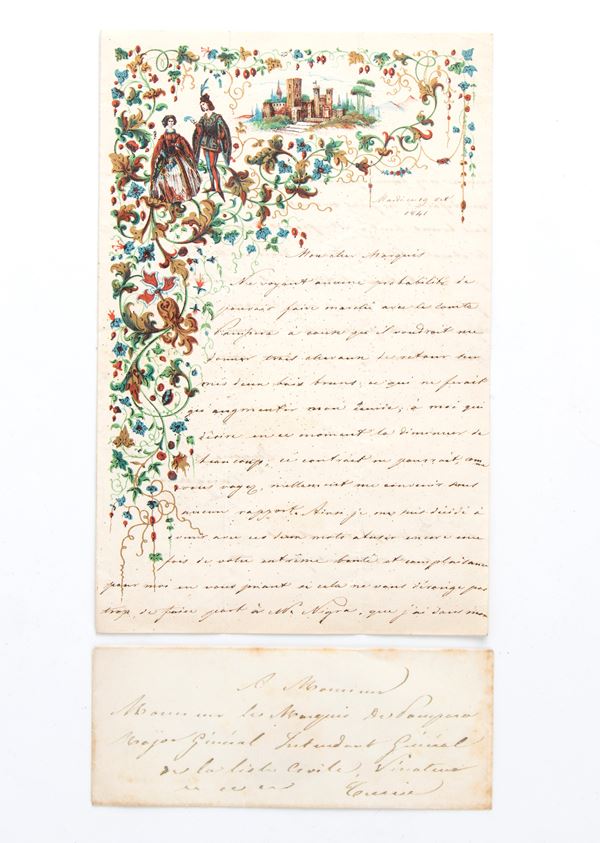 Mardi ce 19 oct
1841
Mon cher Marquis
Ne voyant aucune probabilité de
pouvoir faire marché avec le comte
Pampara à cause qu'il voudrait me
donner trois chevaux de retour sur
mes deux bais bruns; ce qui ne ferait
qu'augmenter mon écurie; à moi qui
désire en ce moment la diminuer de
beaucoup; ce contrat ne pourrait, comme
vous voyez, nullement me convenir sous
aucun rapport. Ainsi je me suis décidé à
venir avec ces deux mots abuser encore une
fois de votre extrême bonté et complaisance
pour moi en vous priant si cela ne vous dérange pas
trop, de faire part à Mr Nigra, que j'ai dans mon
A Monsieur
Monsieur le Marquis de Pampara
Major Général Intendant Général
de la liste civile, Sénateur
Turin